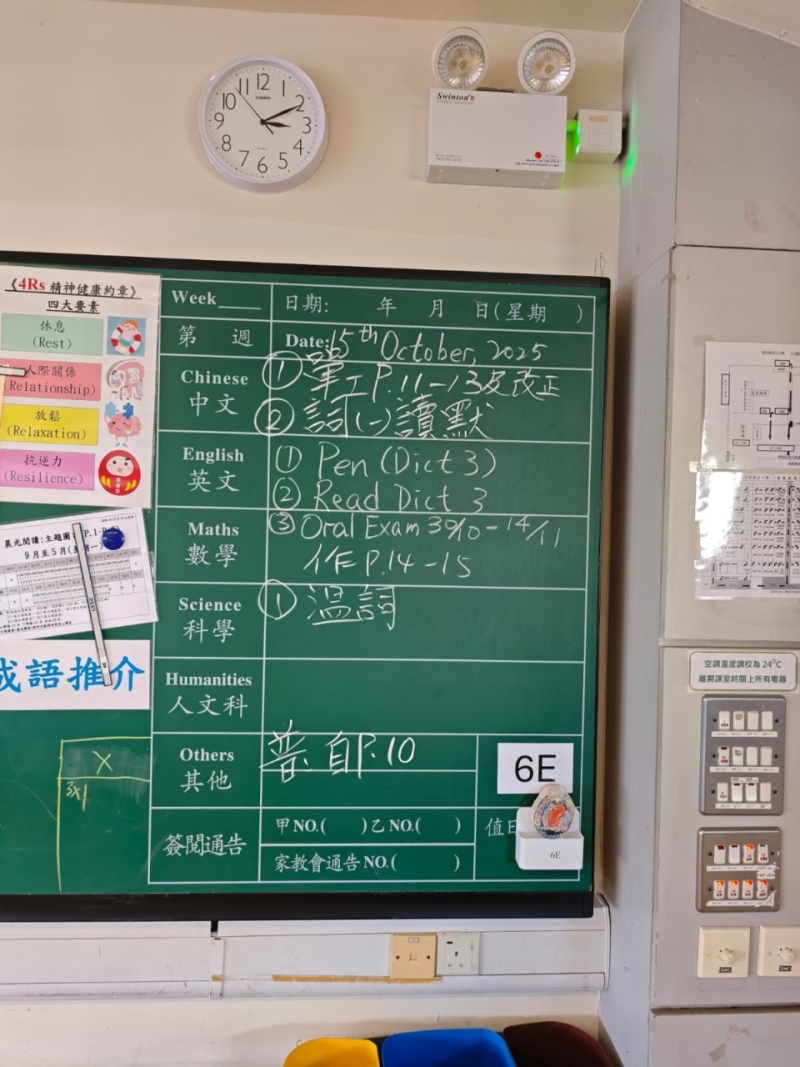 12
11
1
10
2
9
3
8
4
7
5
6
Swinton
《4Rs 精神健康約章》
四大要素
休息
(Rest)
人際關係
(Relationship)
放鬆
(Relaxation)
抗逆力
(Resilience)
晨光閱讀:主題圖
9月至5月
成語推介
X
Week
日期: 年 月 日(星期 )
第 週
Date: 15th October, 2025
Chinese
中文
① 筆工P.11-13及改正
② 詞(一)讀默
English
英文
① Pen (Dict 3)
② Read Dict 3
Maths
數學
③ Oral Exam 30/10-14/11
作P.14-15
Science
科學
① 溫詞
Humanities
人文科
Others
其他
普: 自P.10
6E
簽閱通告
甲NO.( )乙NO.( )
家教會通告NO.( )
值日
6E
空調溫度調校為 24°C
離開課室時關上所有電器